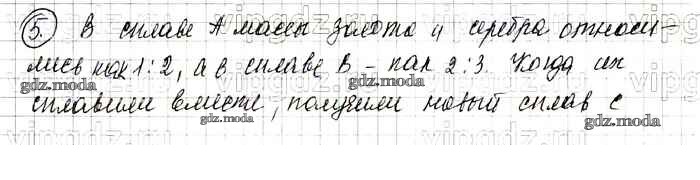 5. В сплаве A массы золота и серебра относи-
лись как 1:2, а в сплаве B - как 2:3. Когда их
сплавили вместе, получили новый сплав с
gdz.moda
gdz.moda
gdz.moda
gdz.moda
gdz.moda
gdz.moda
vipgdz.ru